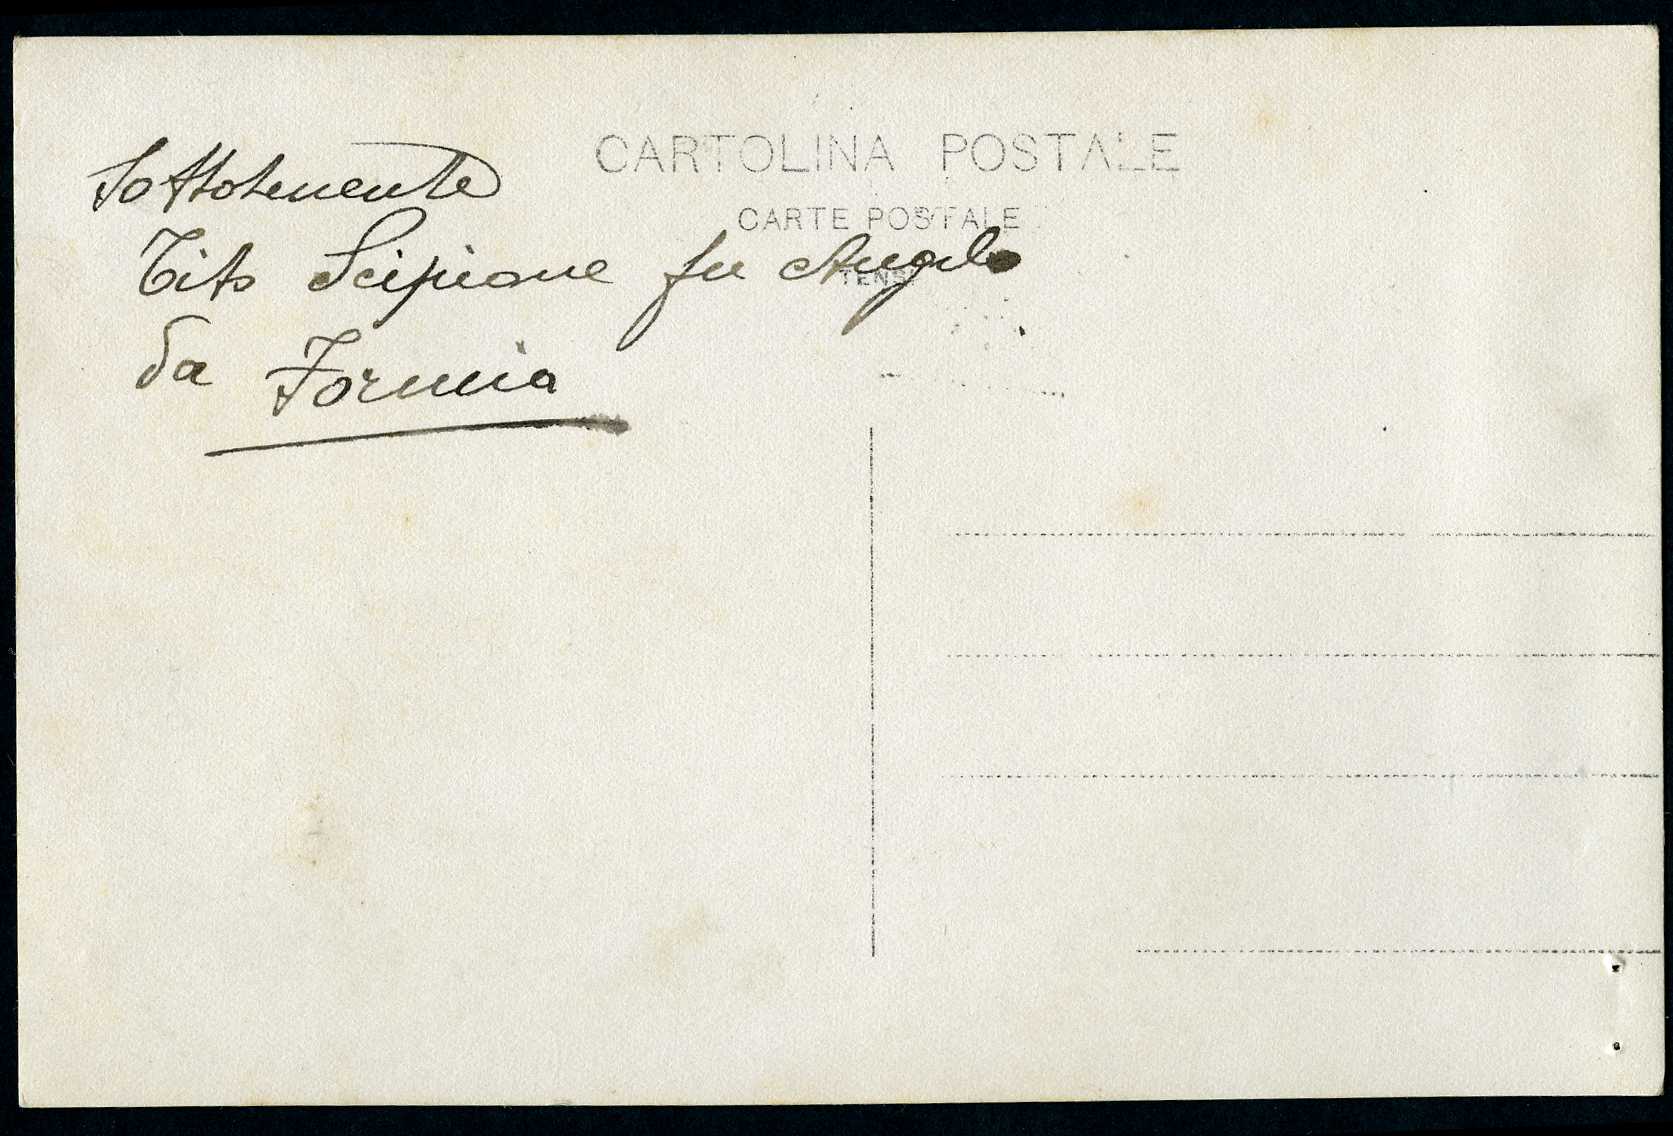 CARTOLINA POSTALE
CARTE POSTALE
TENSI
Sottotenente
Tito Scipione fu Angelo
da Formia